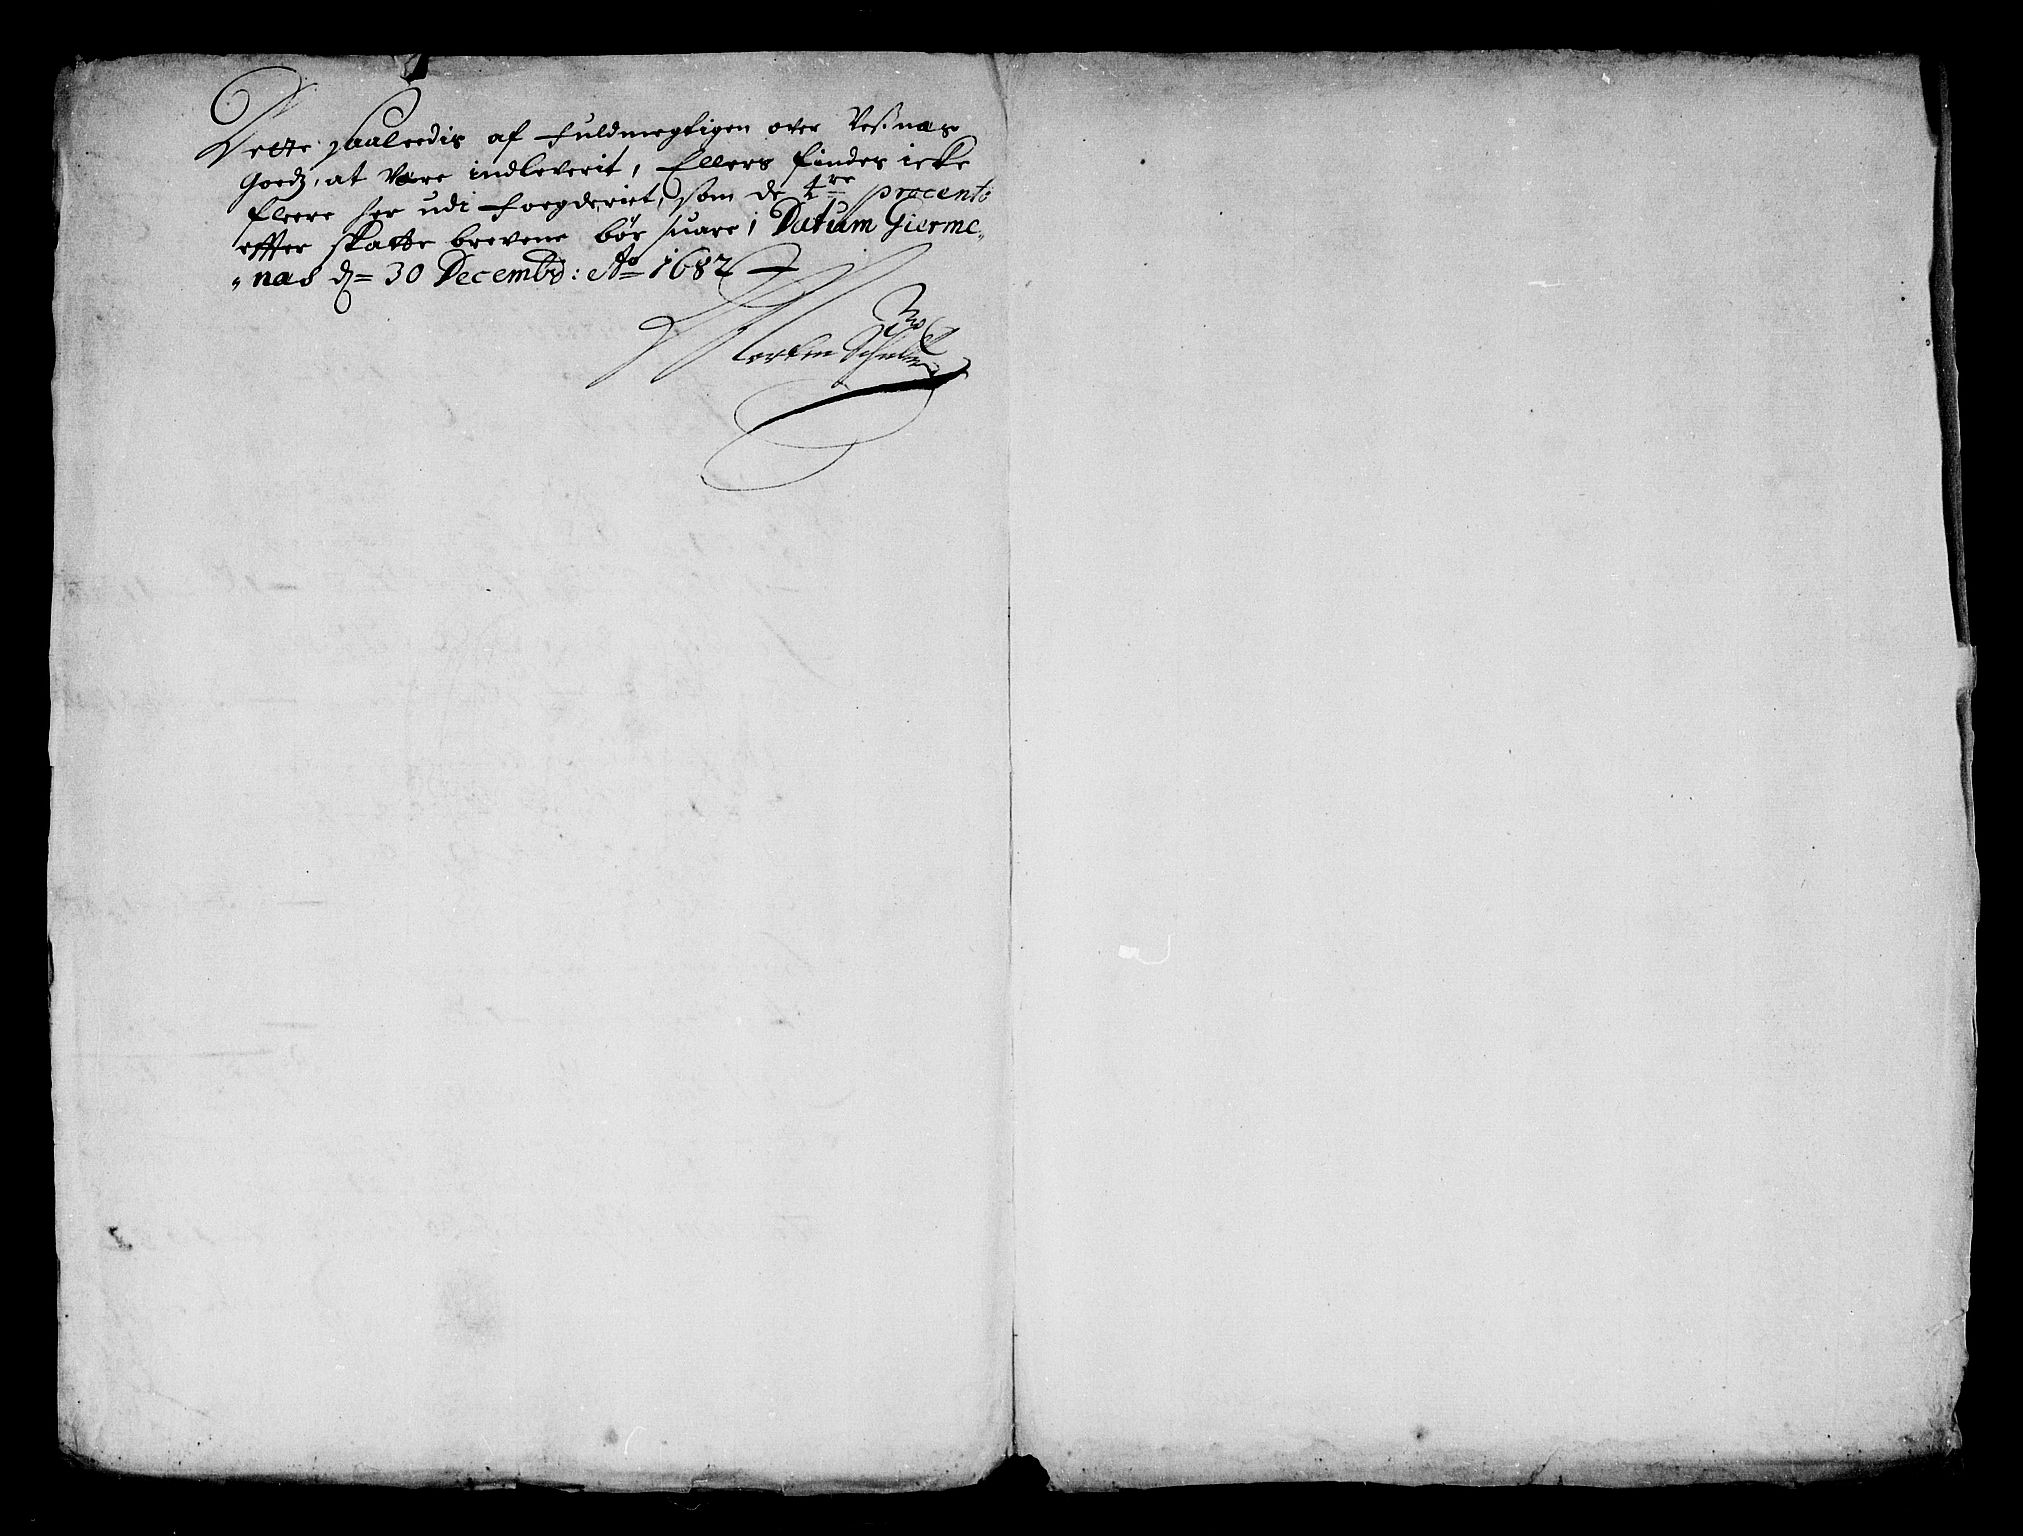 Dette saaleedis af fuldmegtigen over Vesnæs
Goedz, at være indleverit, Ellers findes icke
fleere her udi foegderiet, som de 4re procento
effter skatte brevene bör suare, Datum Gierme„
„næs d= 30 Decembr: Ao 1682
Morten Schul